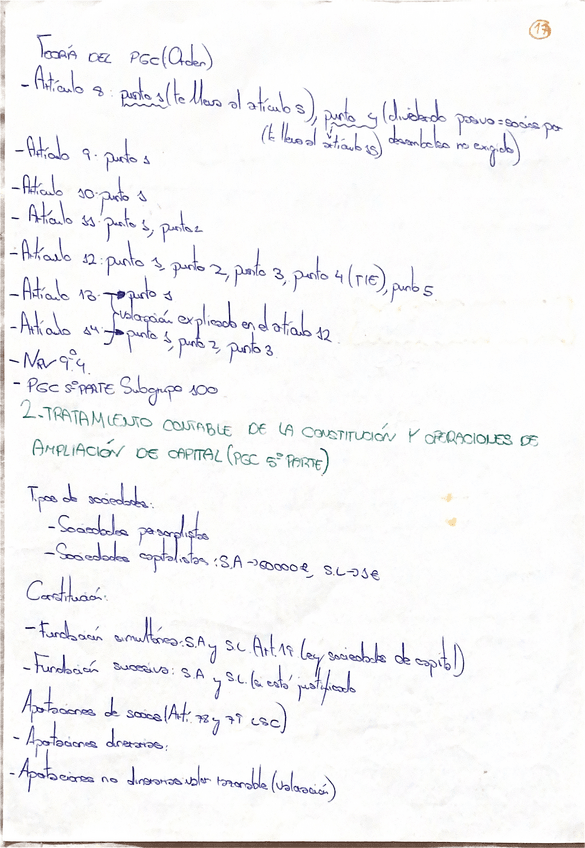 17
TEORÍA DEL PGC (Orden)
- Artículo 8: punto 1 (te lleva al artículo 5), punto 4 (dividendo pasivo = socios por
(te lleva al artículo 15) desembolso no exigido)
- Artículo 9: punto 1
- Artículo 10: punto 1
- Artículo 11: punto 1, punto 2
- Artículo 12: punto 1, punto 2, punto 3, punto 4 (TIE), punto 5
- Artículo 13 → punto 1
valoración explicado en el artículo 12.
- Artículo 14 → punto 1, punto 2, punto 3
- NRV 9º.4.
- PGC 5ª PARTE Subgrupo 100
2. TRATAMIENTO CONTABLE DE LA CONSTITUCIÓN Y OPERACIONES DE
AMPLIACIÓN DE CAPITAL (PGC 5ª PARTE)
Tipos de sociedades:
- Sociedades personalistas
- Sociedades capitalistas: S.A → 60000€, S.L → 1€
Constitución:
- Fundación simultánea: S.A y S.L. Art. 19 (Ley sociedades de capital)
- Fundación sucesiva: S.A y S.L. está justificado
Aportaciones de socios (Art. 78 y 79 LSC)
- Aportaciones dinerarias:
- Aportaciones no dinerarias: valor razonable (valoración)